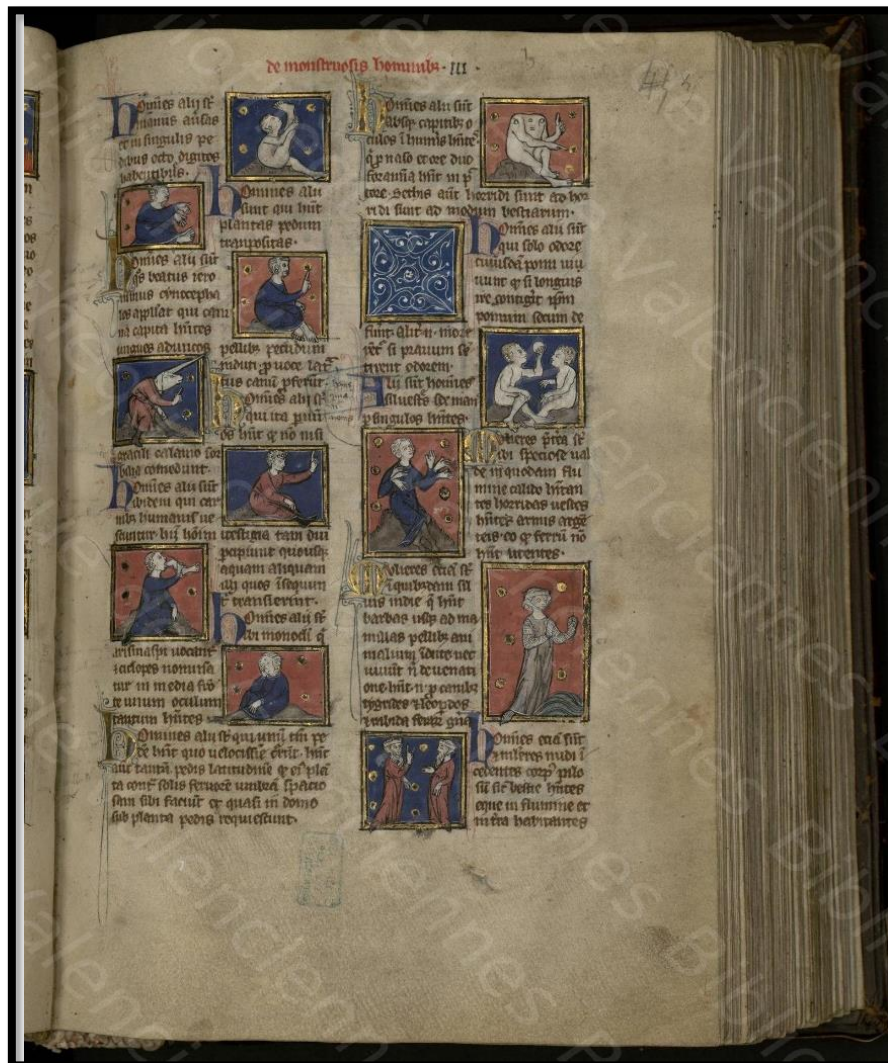 de monstruosis hominibꝫ · III ·
Homines alij st̄
manus auſas
et in singulis pe
dibus octo digitos
habentibus.
Homines alij
sunt qui hn̄t
plantas pedum
tranpositas.
Homines alij sūt
qͦs beatus iero
nimus cynocepha
los appllat qui cani
na capita hn̄tes
ungues aduncos
pellibꝫ pecudum
induti ꝓ uoce latr̄
tus canū ꝓferūt.
Homines alij st̄
qui ita ꝑuū
os hn̄t qͥ nō nisi
gracili calamo sor
bēdo comedunt.
Homines alij sūt
ibidem qui car
nibꝫ humanis ue
scuntur. hij hoīm uestigia tam diu
ꝑcipiunt quousqꝫ
aquam aliquam
illi quos īsequun
tur transierint.
Homines alij st̄
ibi monoculi qͥ
arismaspi uocant᷑
et ciclopes nomīna
tur in media frō
te unum oculum
tantum hn̄tes.
Homines alij st̄ qui unū tm̄ pe
dē hn̄t quo uelocissīe currūt. hn̄t
aut̄ tantā pedis latitudinē qͥ ei᷒ plā
ta cont̄ solis feruorē umbrā spacio
sam sibi faciūt et quasi in domo
sub planta pedis requiescunt.
Homines alij sūt
absqꝫ capitibꝫ o
culos ī humīs hn̄tes.
qͥ ꝓ naso et ore duo
foramīa hn̄t in pͨ
tore. Sethis aūt horridi sunt ad hor
ridi sunt ad modum bestiarum.
Homines alij sūt
qui solo odore
cuiusdā pomi uiu
unt qͥ si longius
ire contigit̄ ip̄m
pomum secum de
ferūt alit̄ n̄ more
ret᷑ si prauum se
tirent odorem.
Alij sūt homines
siluest̄s sex man
᷒ singulos hn̄tes.
Mulieres p̄rea st̄
ibi speciose ual
de in quodam flu
mine calido hītan
tes horridas uestes
hn̄tes armis argē
teis eo qͥ ferrū nō
hn̄t utentes.
Mulieres eciā st̄
ī quibꝫdam sil
uis indie qͥ hn̄t
barbas usqꝫ ad ma
millas pellibꝫ ani
malium īdute uec
uiuūt n̄ de uenati
one. hn̄t n̄ ꝓ canibꝫ
tygrides et leopdos
et rabida ferarꝫ gn̄a.
Homines eciā sūt
et mūlres nudi ī
cedentes corꝑ᷑ pilo
sū sic̄ bestie hn̄tes
eque in flumine et
in tr̄a habitantes